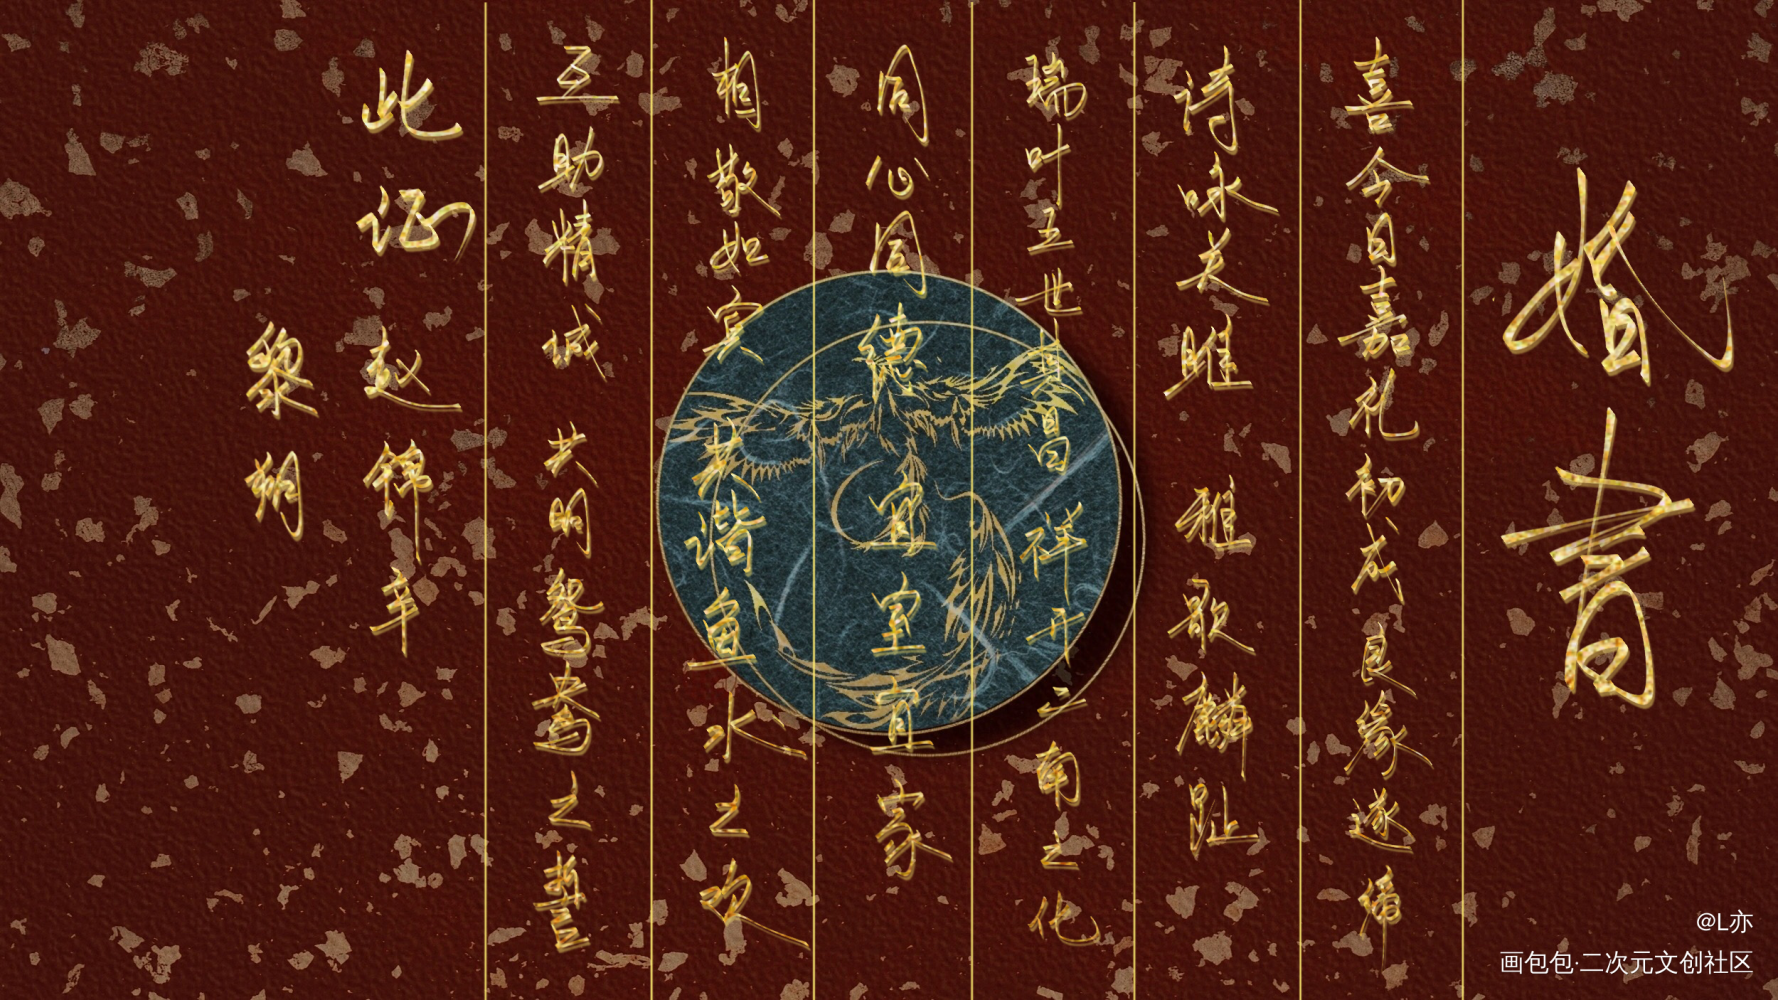 婚书
喜今日嘉礼初成良缘遂缔
诗咏关雎 雅歌麟趾
瑞叶五世其昌 祥开二南之化
同心同德 宜室宜家
相敬如宾 共谐鱼水之欢
互助精诚 共明鸳鸯之誓
此证 赵锦辛
黎朔
@L亦
画包包·二次元文创社区